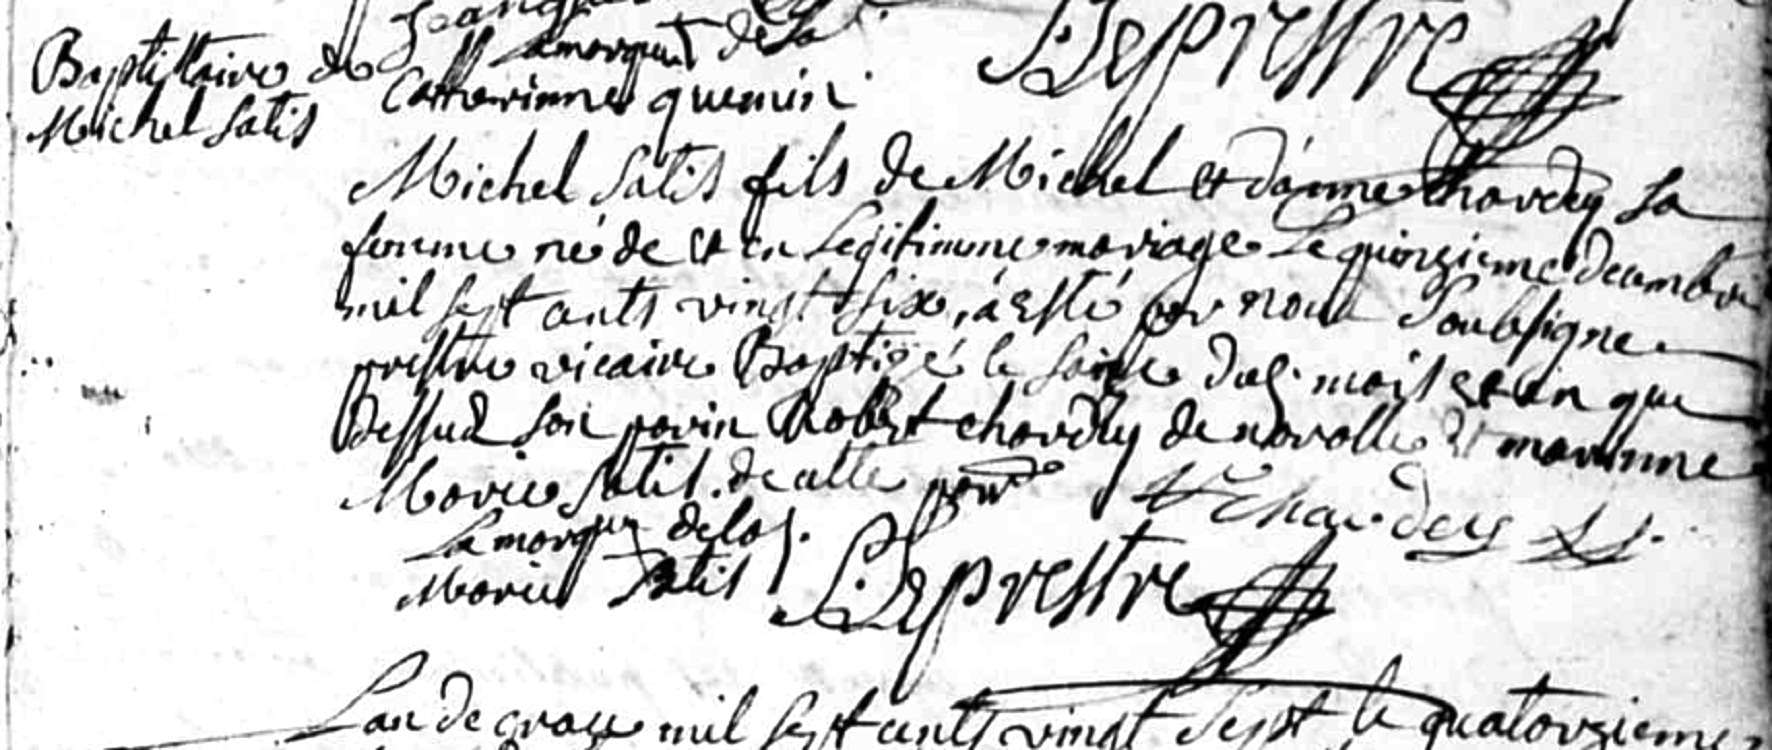 Baptistaire de
Michel Satis
La marque de la
Catherinne quemin
Leprestre
Michel Satis fils de Michel et danne chardey sa
femme né de et en Legitimme mariage Le quinzieme decembre
mil sept cents vingt six, a esté par nous Soubsigne
prestre vicaire Baptizé le saize du mois et an que
Dessus son parin Robert chardey de marolle et marinne
Marie Satis de cette parr
R Chardey
La marque de la
Marie Satis
Leprestre
Lan de grace mil sept cents vingt sept le quatorzieme